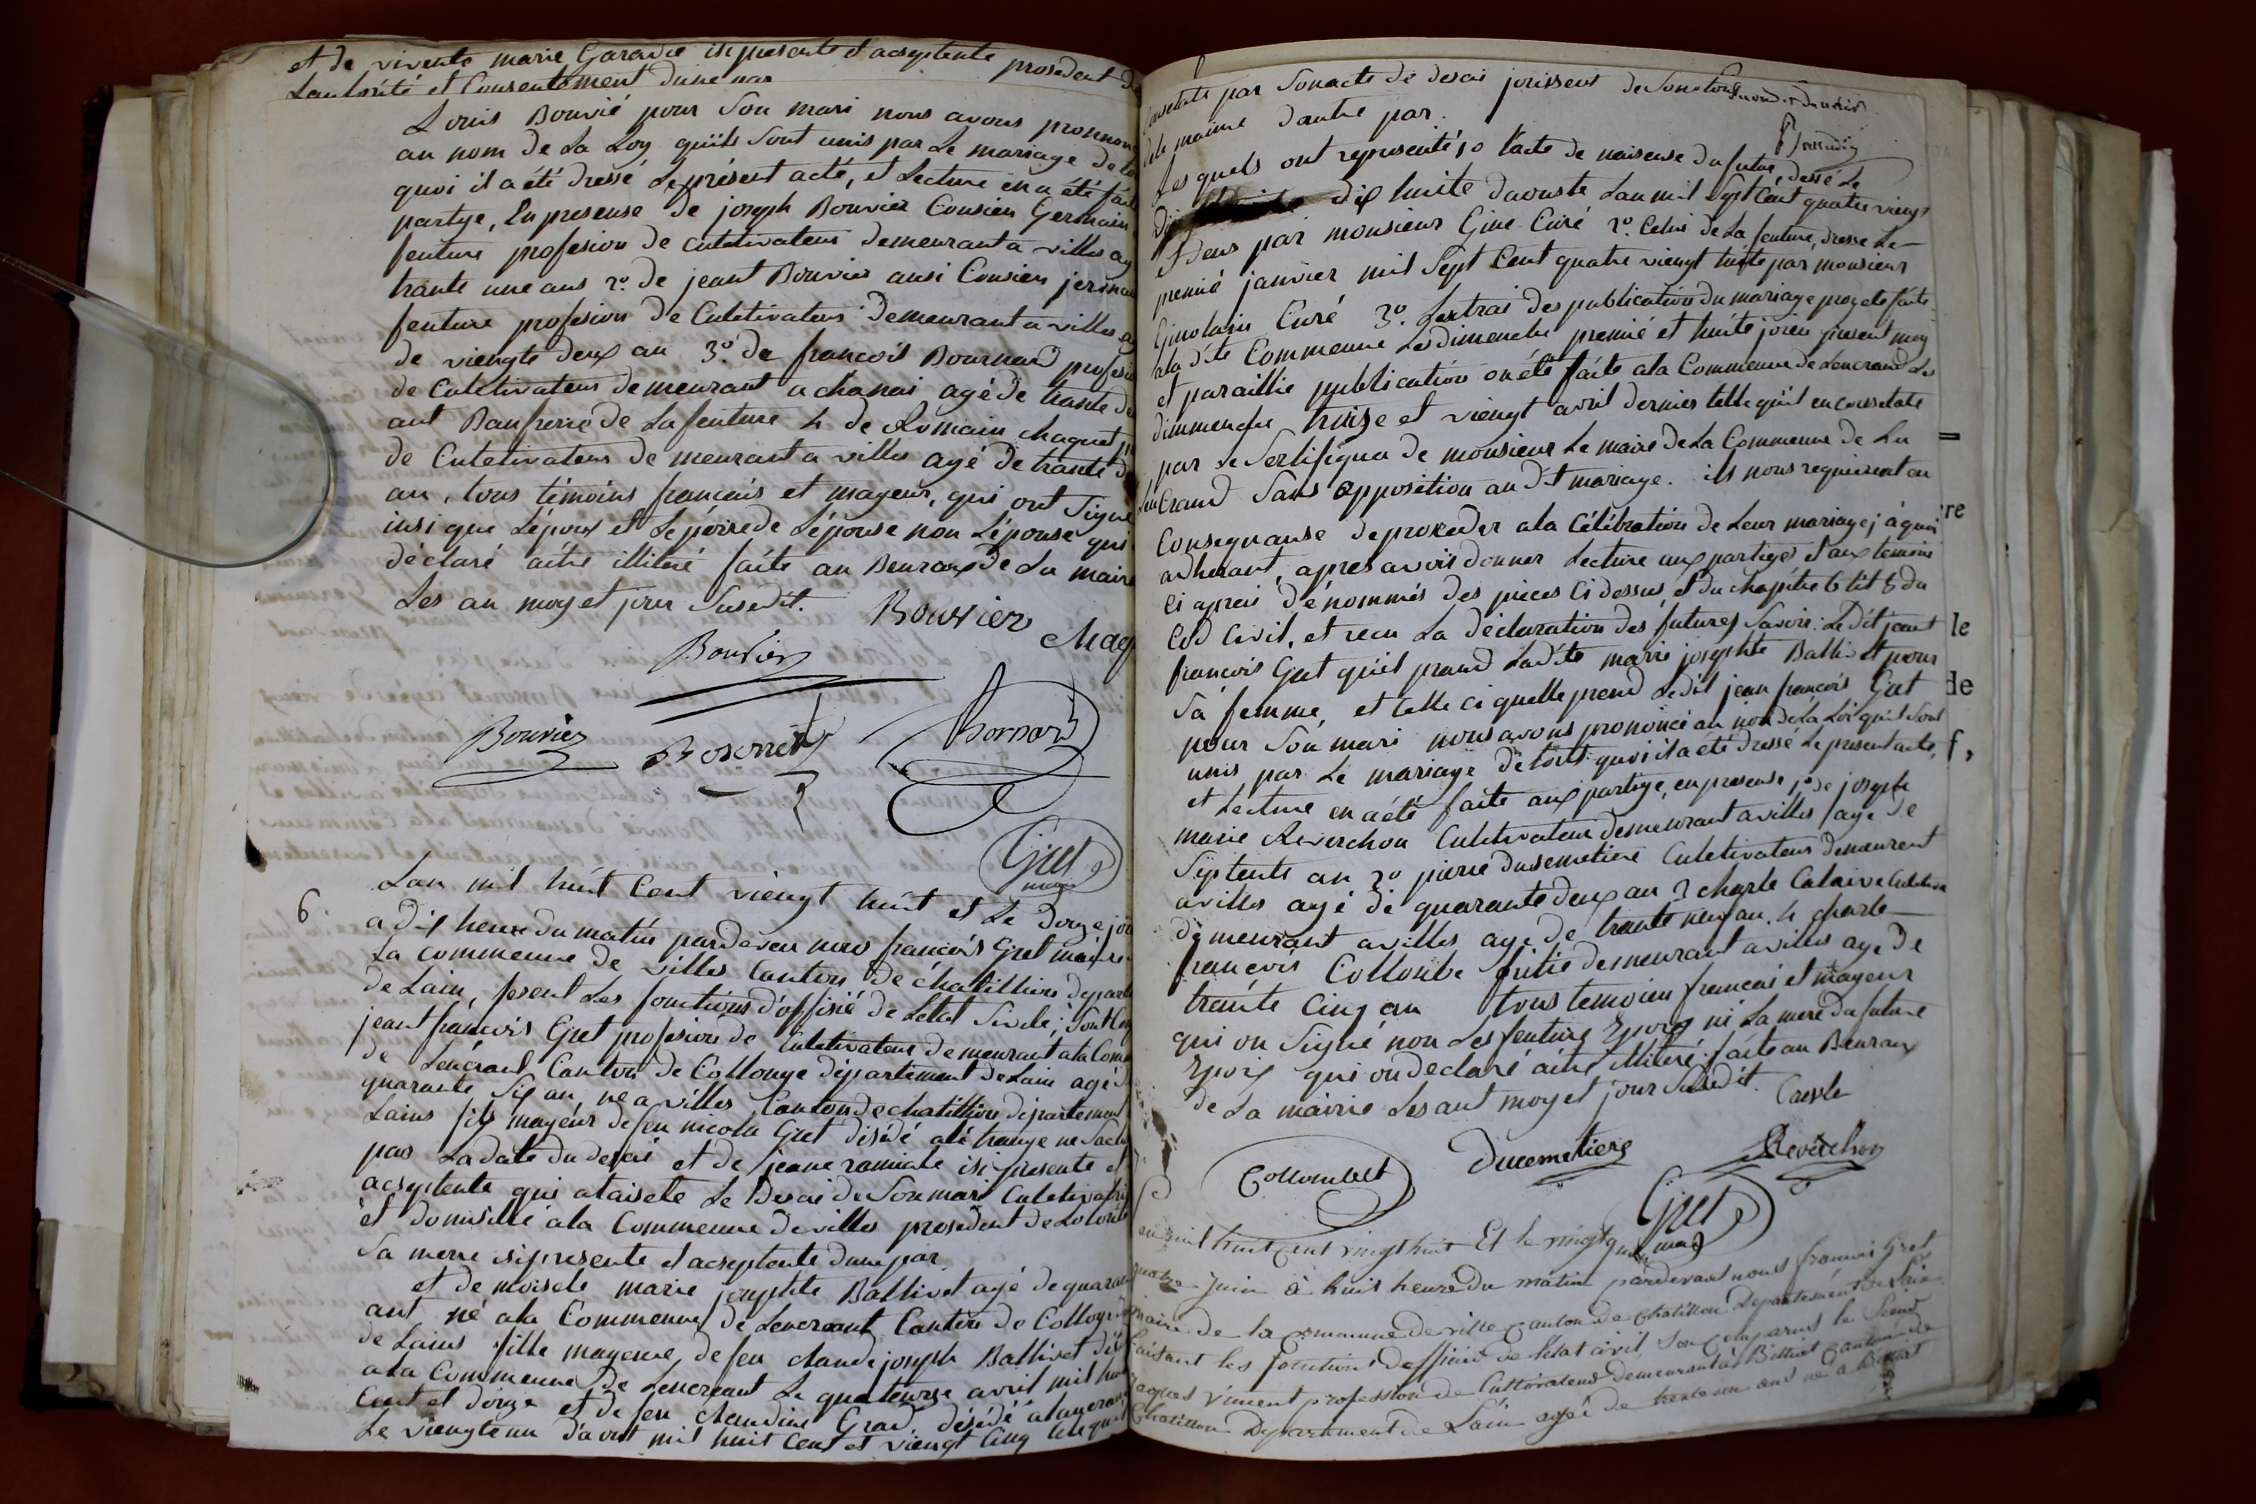 et de vivente marie Garavie isi presente et acseptente prosedent de
Lautorité et Consentement dune par
Louis Bouvié pour Son mari nous avons prononc
au nom de La Loy quiits Sont unis par Le mariage de to
quoi il a été dressé Le présent acté, et Lecture en a été fait
partye, En presense de joseph Bouvier Cousien Germain
feuture profesion de Culetivateur demeurant a villes ag
trante une ans 2º. de jeant Bouvier ausi Cousien jermain
feuture profesion de Culetivateur Demeurant a villes a
de viengte deux an 3º. de francois Bournard profesio
de Culetivateur demeurant a chanai agé de trante de
ant Baufrere de La feuture 4 de Romain chaquet p
de Culetivateur de meurant a villes agé de trante d
an, tous témoins francais et mayeur, qui ont Signé
insi que Lépoux et Le péire de Lépouse non Lépouse qui
déclaré aitre illitéré faite au Beuraux de La mairie
Les an moy et jour Susedit. Bouvier
Bouvier Chaq
Bouvier Bosonnet Bornard
Gret
maire
6. Lan mil huit Cent viengt huit et Le Douze jou
a dix heure du matin pardeven nous francois Gret maire
La commeune de villes Canton de chatillion depart
de Lain, fesent Les fonctions d'offisié de Létat Sivile; Sont Com
jeant francois Gret profesion de Culetivateur demeurant a la Com
de Lencrant Canton de Collonge département de Lain agé d
quarante Six an, né a villes Canton de chatillion département
Lains fils mayeur de feu nicola Gret désédé a lé trange ne Sach
pas La date du desai et de jeane ramiate isi presente et
acseptente qui ataiseté Le Desai de Son mari Culetivatri
et domisilié a la Commeune de villes prosedent de Lotorité
Sa mere si presente et acseptente dune par
et de moisele marie josephte Ballivet agé de quarant
ant né a la Commeune de Lencreant Canton de Collonge
de Lains fille mayeure, de feu claude joseph Ballivet désé
a la Commeune de Lencreant Le quateurze avril mil hui
Cent et douze et de feu claudine Grad désédé a lancrans
Le viengte un davril mil huit Cent et viengt Cinq telequi
Consetate par Son acte de desai jouissent de Son
dele maime dautre par.
Les quels ont representé, 1º Lacte de naisense du futur, dessé Le
dix huite daouste Lan mil Sept Cent quatre viengt
et Deux par monsieur Gine Curé 2º. Celui de La feuture, dresse Le
premié janvier mil Sept Cent quatre viengt huite par monsieur
Ginolain Curé 3º. Lextrai des publication du mariage projeté faite
a la dite Commeune Les dimenche premié et huite jouin present moy
et paraillie publication on été faite a la Commeune de Lencrand Les
dimmenche treize et viengt avril dernier telle quil en consetate
par Le Sertifiqua de monsieur Le maire de La Commeune de La
Crand Sans opposition au dit mariage. ils nous requierent en
Consequanse de proxéder a la Célébration de Leur mariage; à quoi
adherant, apres avoir donner Lecture aux partiyes et aux temoins
ci aprais dénommés des pieces Ci dessus et du chapitre 6 tit 5 du
Cod Civil, et recu La déclaration des futures Savoir: Le Dit jeant
francois Gret quil prand La dite marie josephte Ballivet pour
Sa femme, et telle ci quelle prend Ledit jean francois Gret
pour Son mari nous avons prononcé au nom de La Loi quil Sont
unis par Le mariage de touts quoi il a été dressé Le present acte,
et Lecture en a été faite aux partiye, en presense, 1º. de joseph
marie Reverchon Culetivateur demeurant a villes age de
Septente an 2º pierre Dusemetiere Culetivateur demeurent
a villes agé de quarante deux an 3 charle Calaive Culetiva
demeurant a villes age de trante neuf an. 4 charle
francois Collombe fritié demeurant a villes age de
trante Cinq an tous temoien francai et mayeur
qui on Signé non Les feuture Epoux ni La mere du future
Epoux qui on declaré aitre illitéré. faite au Beuraux
de La mairie Les ant moy et jour Susedit. Carele
Collombet Ducemetiere Reverchon
Gret
maire
en mil huit cent vingt huit Et le vingt
quatre juin à huit heure du matin pardevant nous francois Gret
maire de la commune de ville canton de chatillon Departement de Lain
faisant les fonctions deffisier de létat civil, Son Comparus le Sieur
jaques vincent profession de Cultivateur demeurant à Billiat canton de
Chatillon Département de Lain agé de trente un ans né à Billiat
re
le
de
f,